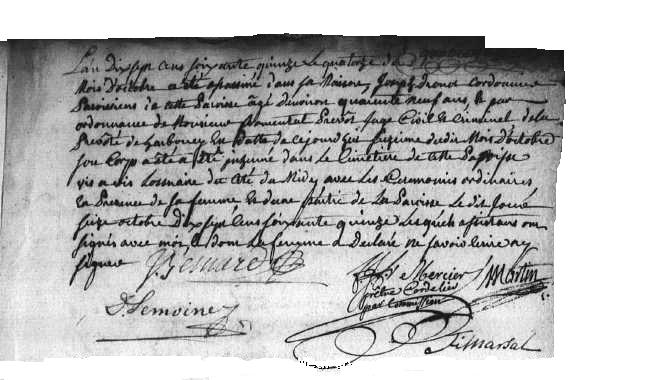 L'an Dix sept cens soixante quinze Le quatorze du
Mois D'octobre a eté assassiné dans sa Maison, Joseph Cordonnier
Paroissiens de cette Paroisse âgé D'environ quarante neuf ans, & par
ordonnance de Monsieur Prevot juge Civil & Criminel de la
Prevoté de en Datte de ce jourd'huy seizieme dudit Mois D'octobre
son Corps a été inhumé dans le Cimetiere de cette Paroisse
vis a vis du Cóté du Midy avec Les Ceremonies ordinaires
en Presence de sa femme & d'une partie de La Paroisse Le dit jour
seize octobre Dix sept Cens soixante quinze Lesquels assistans ont
signés avec moi, Le femme a Declaré ne savoir écrire ny
signer
Mercier Martin
prêtre Cordelier
par Commission
D. Lemoine
Marsal